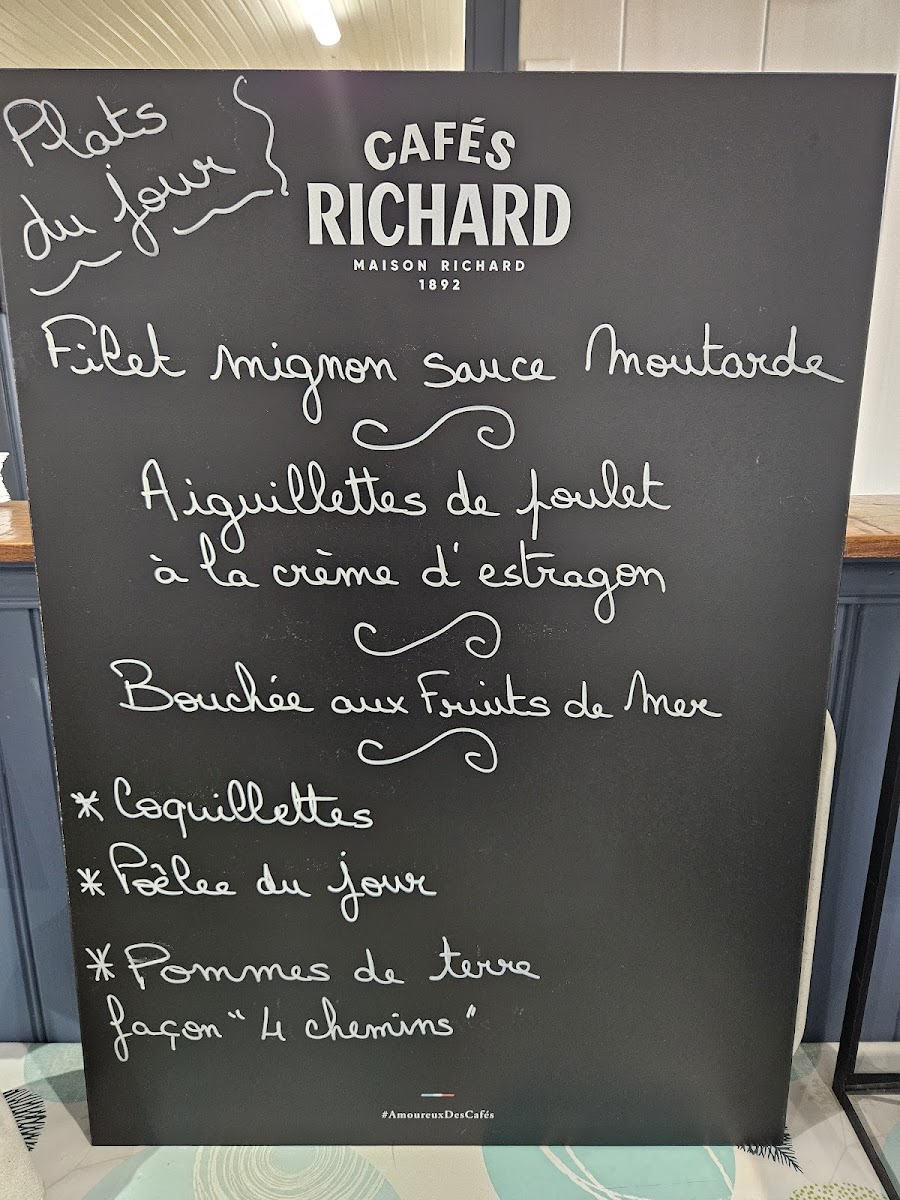 Plats
du jour
CAFÉS
RICHARD
MAISON RICHARD
1892
Filet mignon sauce Moutarde
Aiguillettes de poulet
à la crème d'estragon
Bouchée aux Fruits de Mer
* Coquillettes
* Poêlee du jour
* Pommes de terre
façon "4 chemins"
#AmoureuxDesCafés